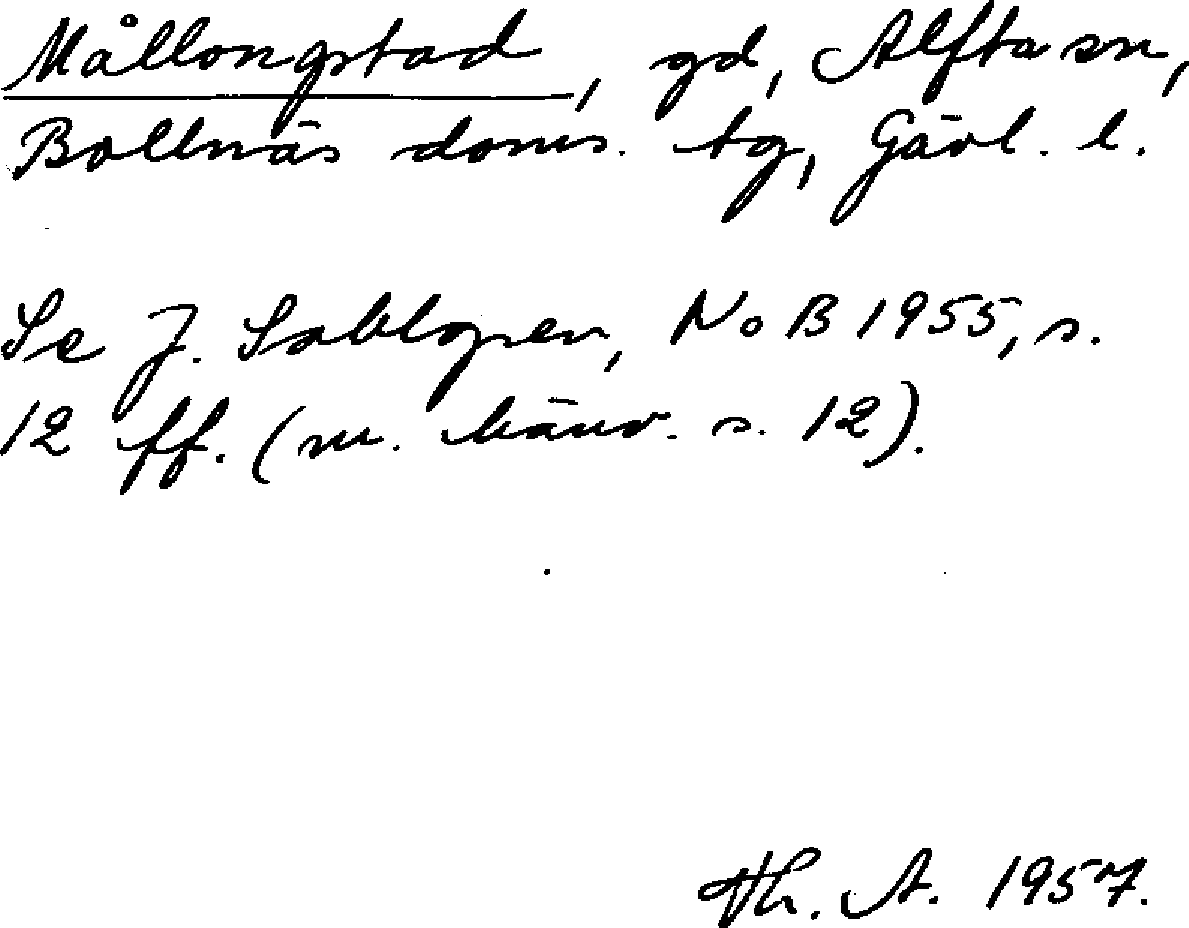 Mållongstad, gd, Alfta sn,
Bollnäs doms. tg, Gävl. l.
Se J. Sahlgren, NoB 1955, s.
12 ff. (m. hänv. s. 12).
Th. A. 1957.